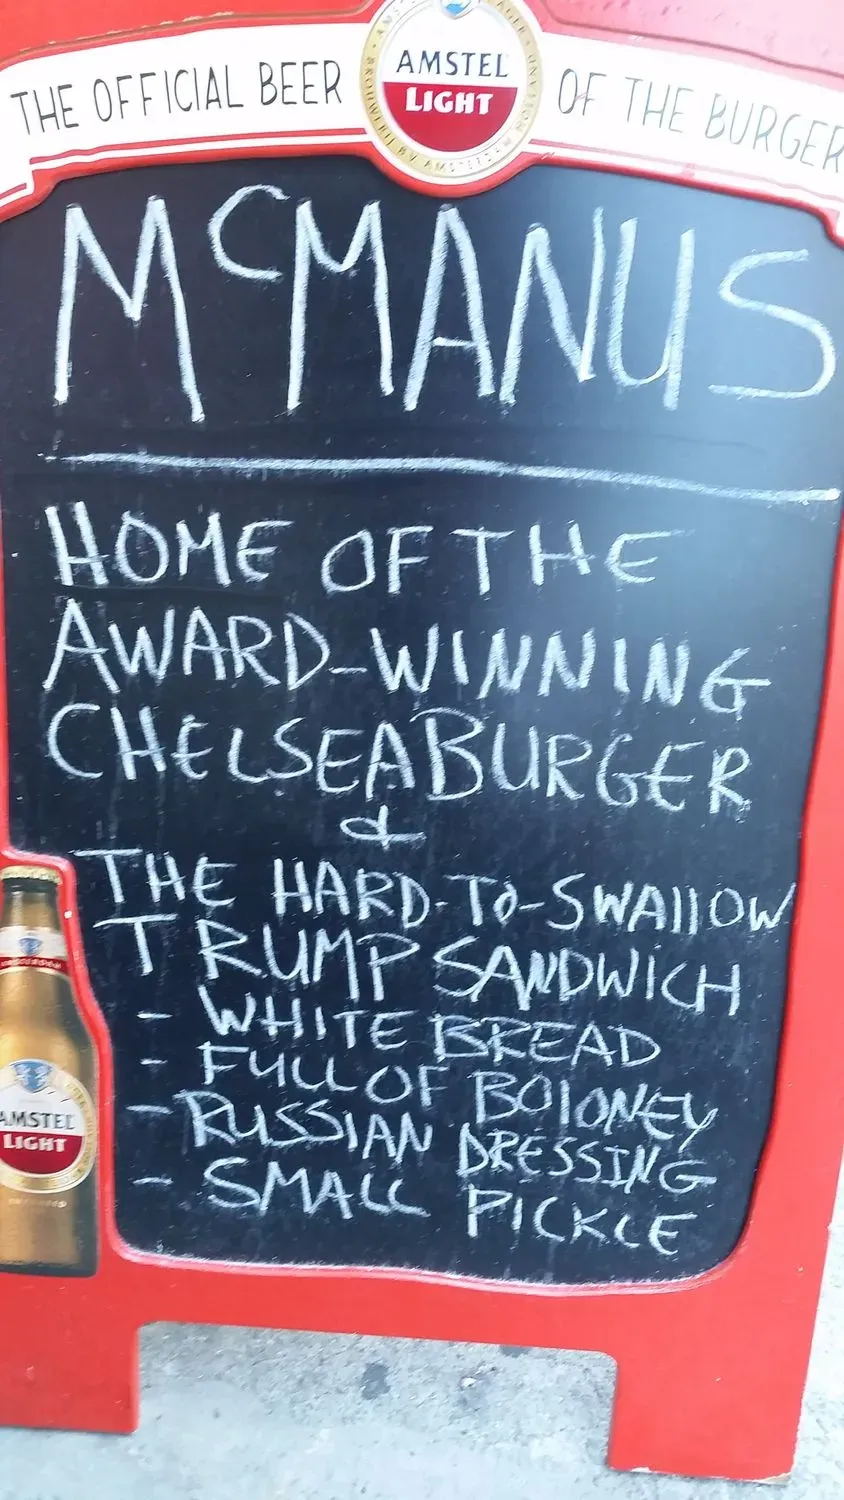 THE OFFICIAL BEER OF THE BURGER
AMSTEL
LIGHT
McMANUS
HOME OF THE
AWARD-WINNING
CHELSEABURGER
&
THE HARD-TO-SWALLOW
TRUMP SANDWICH
- WHITE BREAD
- FULL OF BOLONEY
- RUSSIAN DRESSING
- SMALL PICKLE
AMSTEL
LIGHT